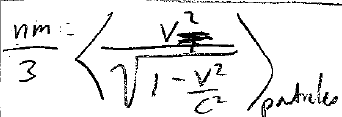 nm/3 = ⟨ v² / √(1 - v²/c²) ⟩ particles